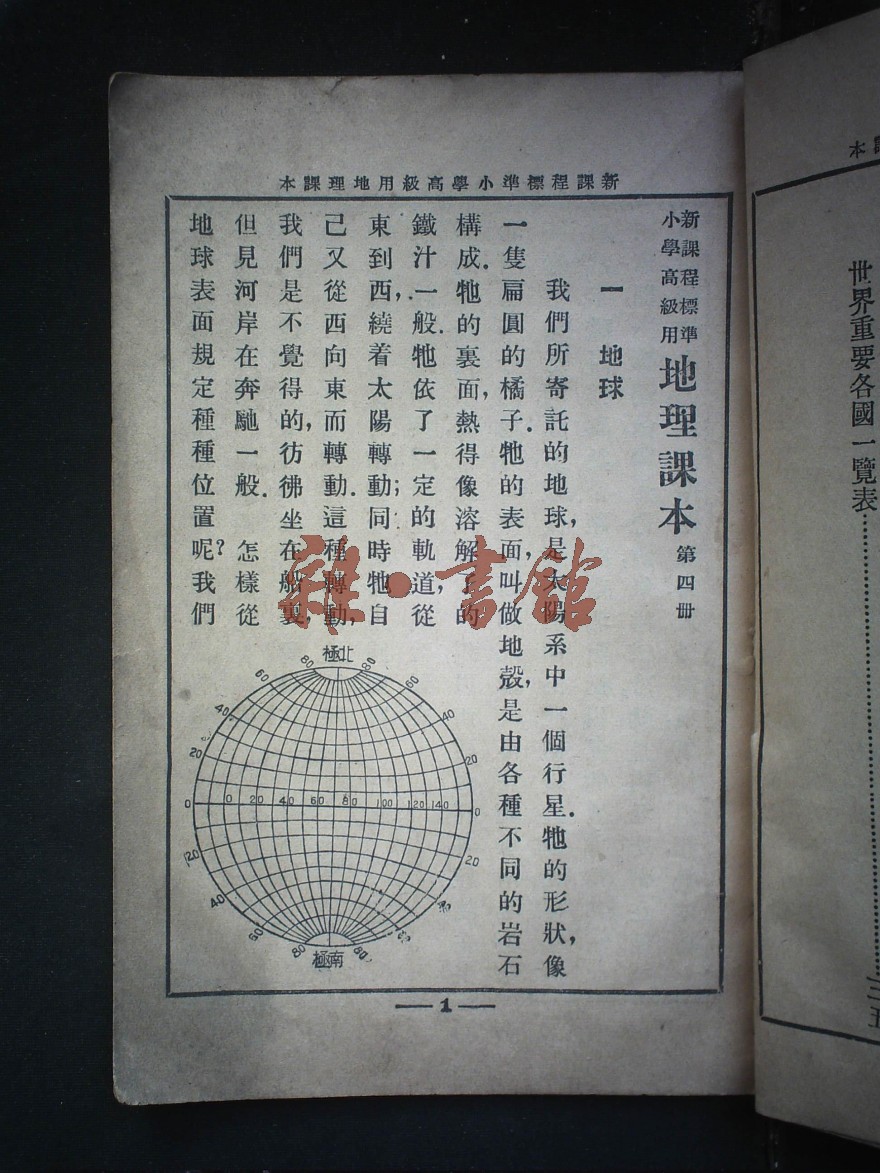 新課程標準小學高級用地理課本
新課程標準
小學高級用
地理課本 第四冊
一 地球
我們所寄託的地球，是太陽系中一個行星．牠的形狀，像
一隻扁圓的橘子．牠的表面，叫做地殼，是由各種不同的岩石
構成．牠的裏面，熱得像溶解了的
鐵汁一般．牠依了一定的軌道，從
東到西，繞着太陽轉動；同時牠自
己又從西向東而轉動．這種轉動，
我們是不覺得的，彷彿坐在船裏，
但見河岸在奔馳一般． 怎樣從
地球表面規定種種位置呢？我們
北極
80 80
60 60
40 40
20 20
0 0 20 40 60 80 100 120 140 0
20 20
40
60
80 80
南極
1
世界重要各國一覽表
雜·書館